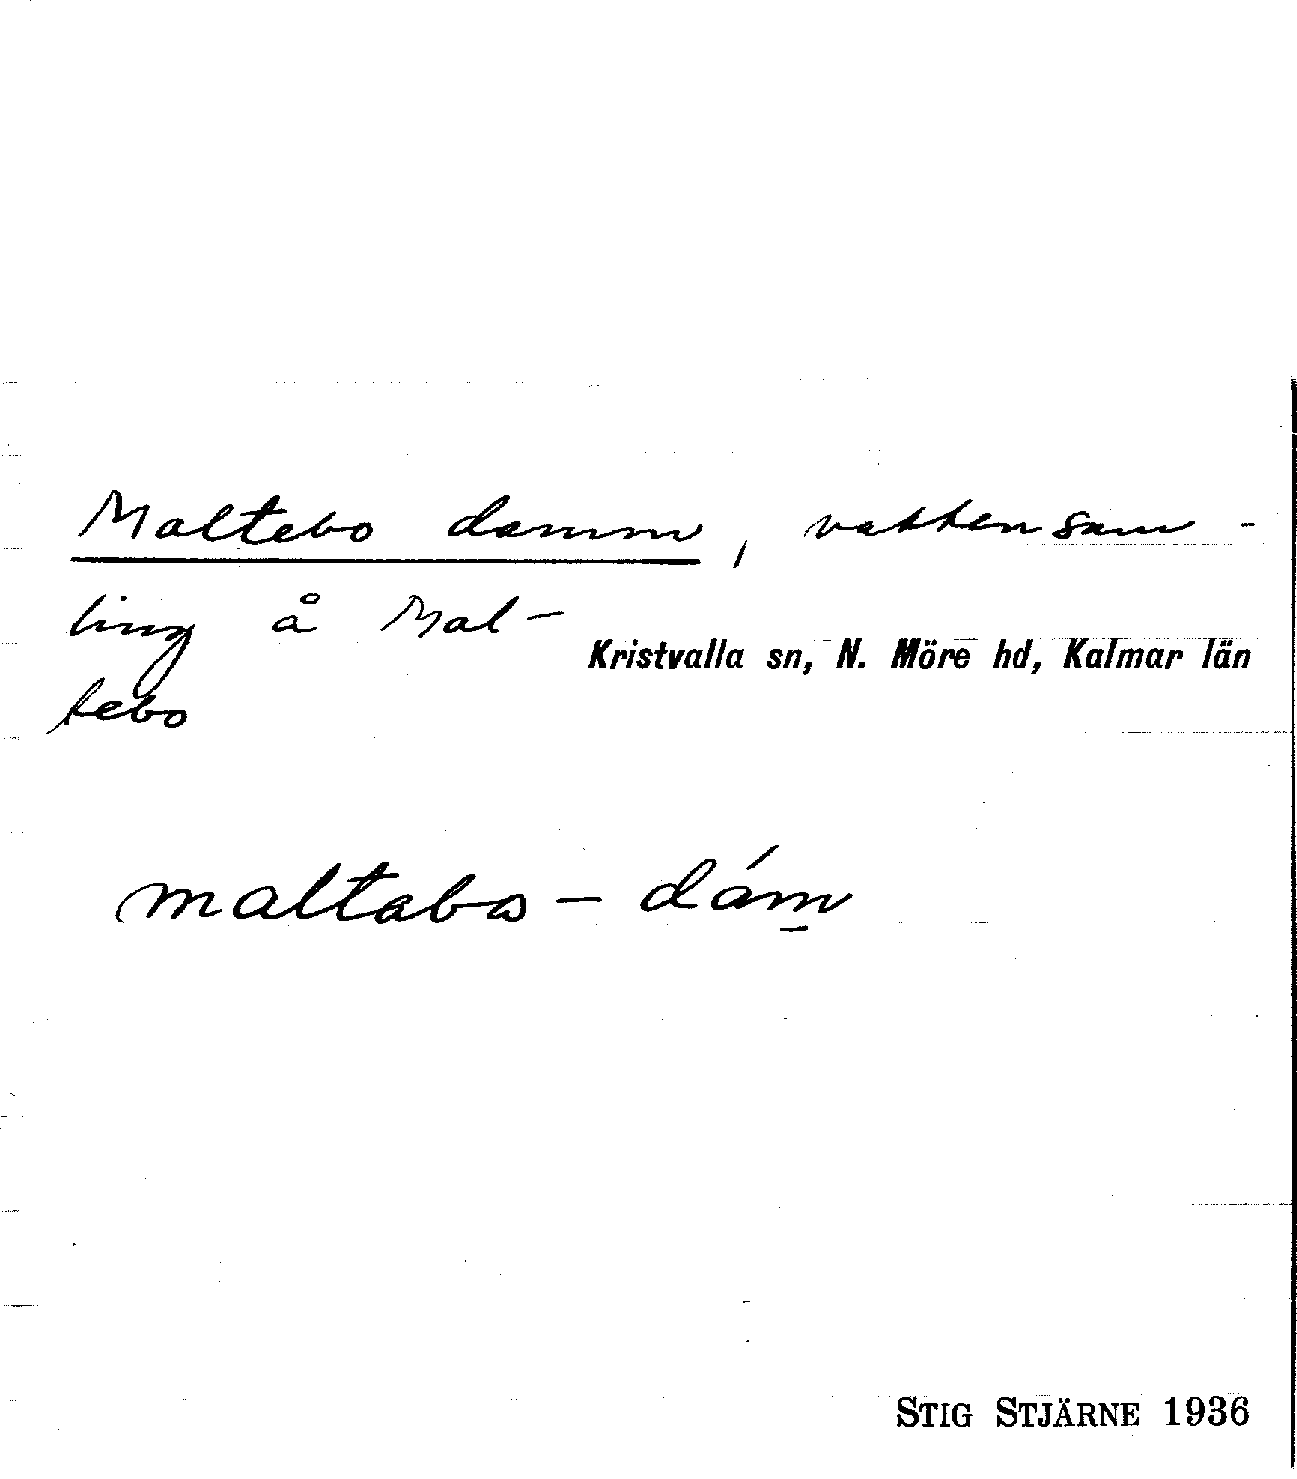 Maltebo damm, vattensam-
ling å Mal-
Kristvalla sn, N. Möre hd, Kalmar län
tebo
maltabo - dám̲
STIG STJÄRNE 1936